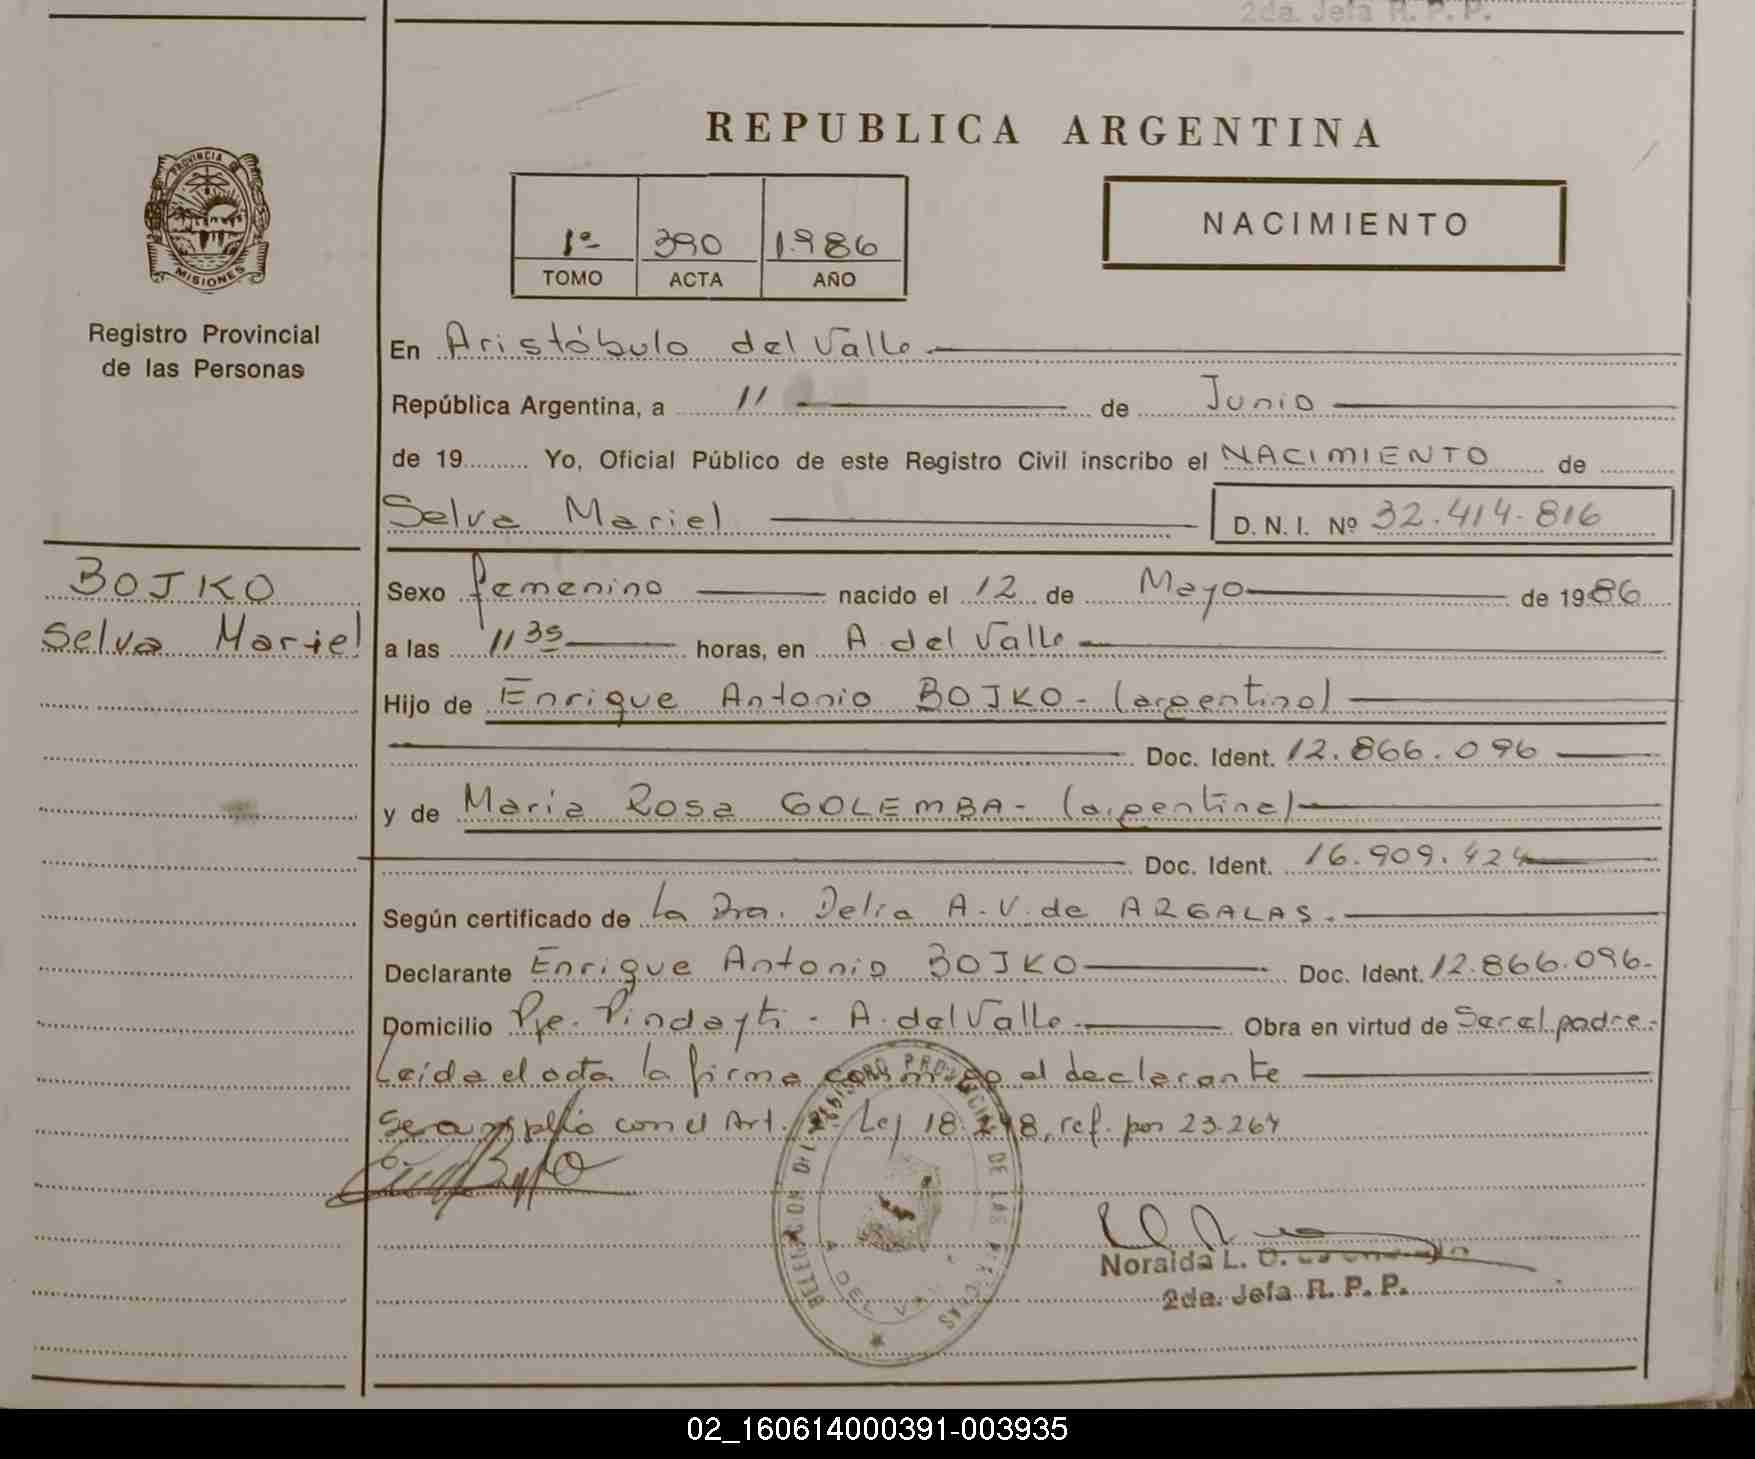 2da. Jefa R. P. P.
REPUBLICA ARGENTINA
PROVINCIA DE
MISIONES
Registro Provincial
de las Personas
1º 390 1.986
TOMO ACTA AÑO
NACIMIENTO
En Aristóbulo del Valle
República Argentina, a 11 de Junio
de 19 Yo, Oficial Público de este Registro Civil inscribo el NACIMIENTO de
Selva Mariel D. N. I. Nº 32.414.816
BOJKO
Selva Mariel
Sexo femenino nacido el 12 de Mayo de 1986
a las 11 35 horas, en A. del Valle
Hijo de Enrique Antonio BOJKO - (argentino)
Doc. Ident. 12.866.096
y de Maria Rosa GOLEMBA - (argentina)
Doc. Ident. 16.909.424
Según certificado de la Dra. Delia A. V. de ARGALAS.
Declarante Enrique Antonio BOJKO Doc. Ident. 12.866.096.
Domicilio Pje. Pindayti - A. del Valle Obra en virtud de Ser el padre-
Leída el acta la firma conmigo el declarante
se amplió con el Art. Ley 18.248, ref. por 23.264
DELEGACION DEL REGISTRO PROVINCIAL DE LAS PERSONAS
A. DEL VALLE
Noraida L.
2da. Jefa R. P. P.
02_160614000391-003935